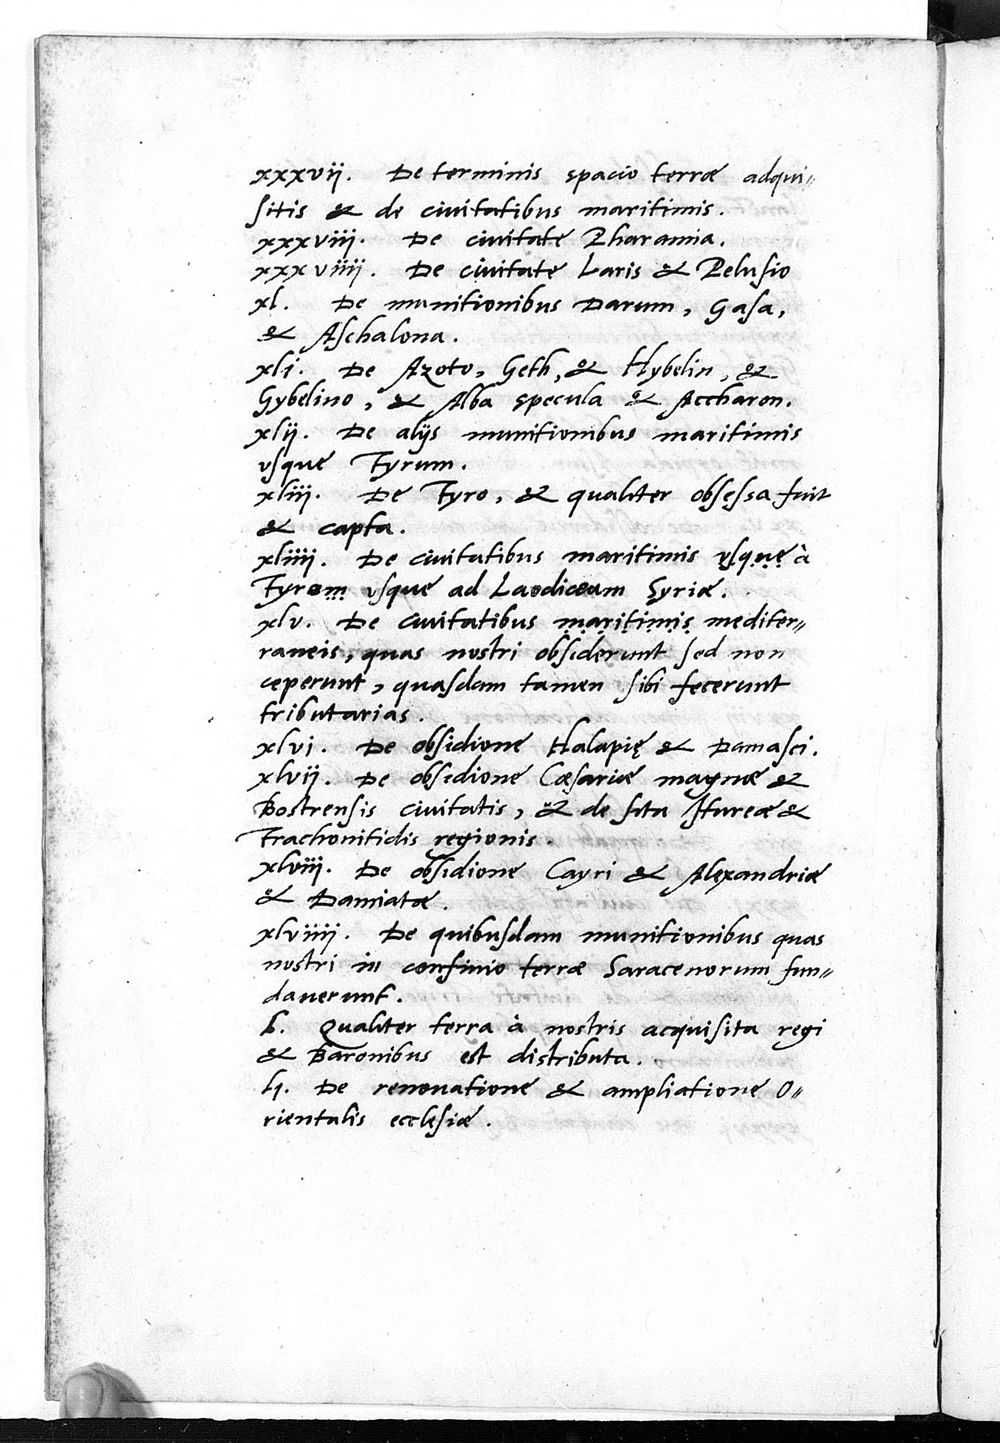 xxxvii. De terminis spacio terræ adqui=
sitis & de ciuitatibus maritimis.
xxxviii. De ciuitate Pharamia.
xxxviiii. De ciuitate Laris & Pelusio
xl. De munitionibus Darum, Gasa,
& Aschalona.
xli. De Azoto, Geth, & Hybelin, &
Gybelino, & Alba specula & Accharon.
xlii. De aliis munitionibus maritimis
vsque Tyrum.
xliii. De Tyro, & qualiter obsessa fuit
& capta.
xliiii. De ciuitatibus maritimis vsque à
Tyrom vsque ad Laodiceam Syriæ.
xlv. De ciuitatibus maritimis mediter=
raneis, quas nostri obsiderunt sed non
ceperunt, quasdam tamen sibi fecerunt
tributarias.
xlvi. De obsidione Halapię & Damasci.
xlvii. De obsidione Cæsariæ magnæ &
Bostrensis ciuitatis, & de situ Itureæ &
Trachonitidis regionis.
xlviii. De obsidione Cayri & Alexandriæ
& Damiatæ.
xlviiii. De quibusdam munitionibus quas
nostri in confinio terræ Saracenorum fun=
dauerunt.
L. Qualiter terra à nostris acquisita regi
& Baronibus est distributa.
Li. De renouatione & ampliatione O=
rientalis ecclesiæ.